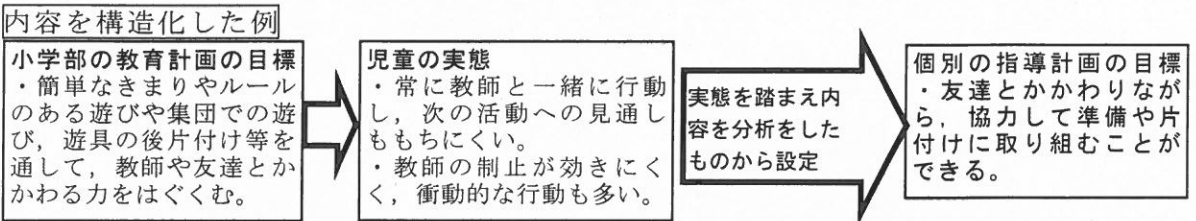 内容を構造化した例
小学部の教育計画の目標
・簡単なきまりやルール
のある遊びや集団での遊
び，遊具の後片付け等を
通して，教師や友達とか
かわる力をはぐくむ。
児童の実態
・常に教師と一緒に行動
し，次の活動への見通し
ももちにくい。
・教師の制止が効きにく
く，衝動的な行動も多い。
実態を踏まえ内
容を分析をした
ものから設定
個別の指導計画の目標
・友達とかかわりなが
ら，協力して準備や片
付けに取り組むことが
できる。